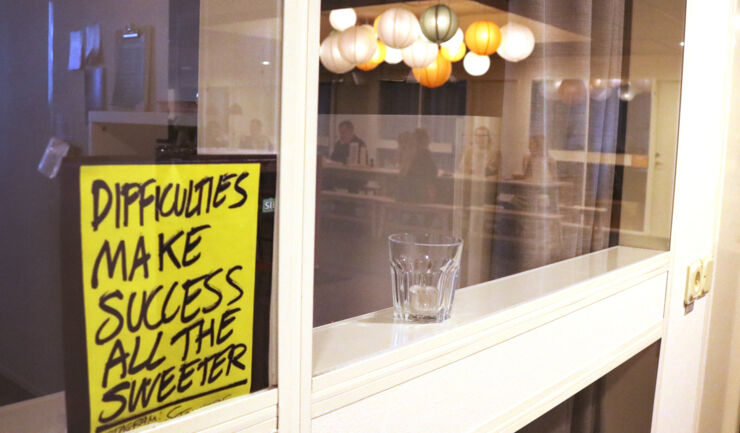 DIFFICULTIES
MAKE
SUCCESS
ALL THE
SWEETER